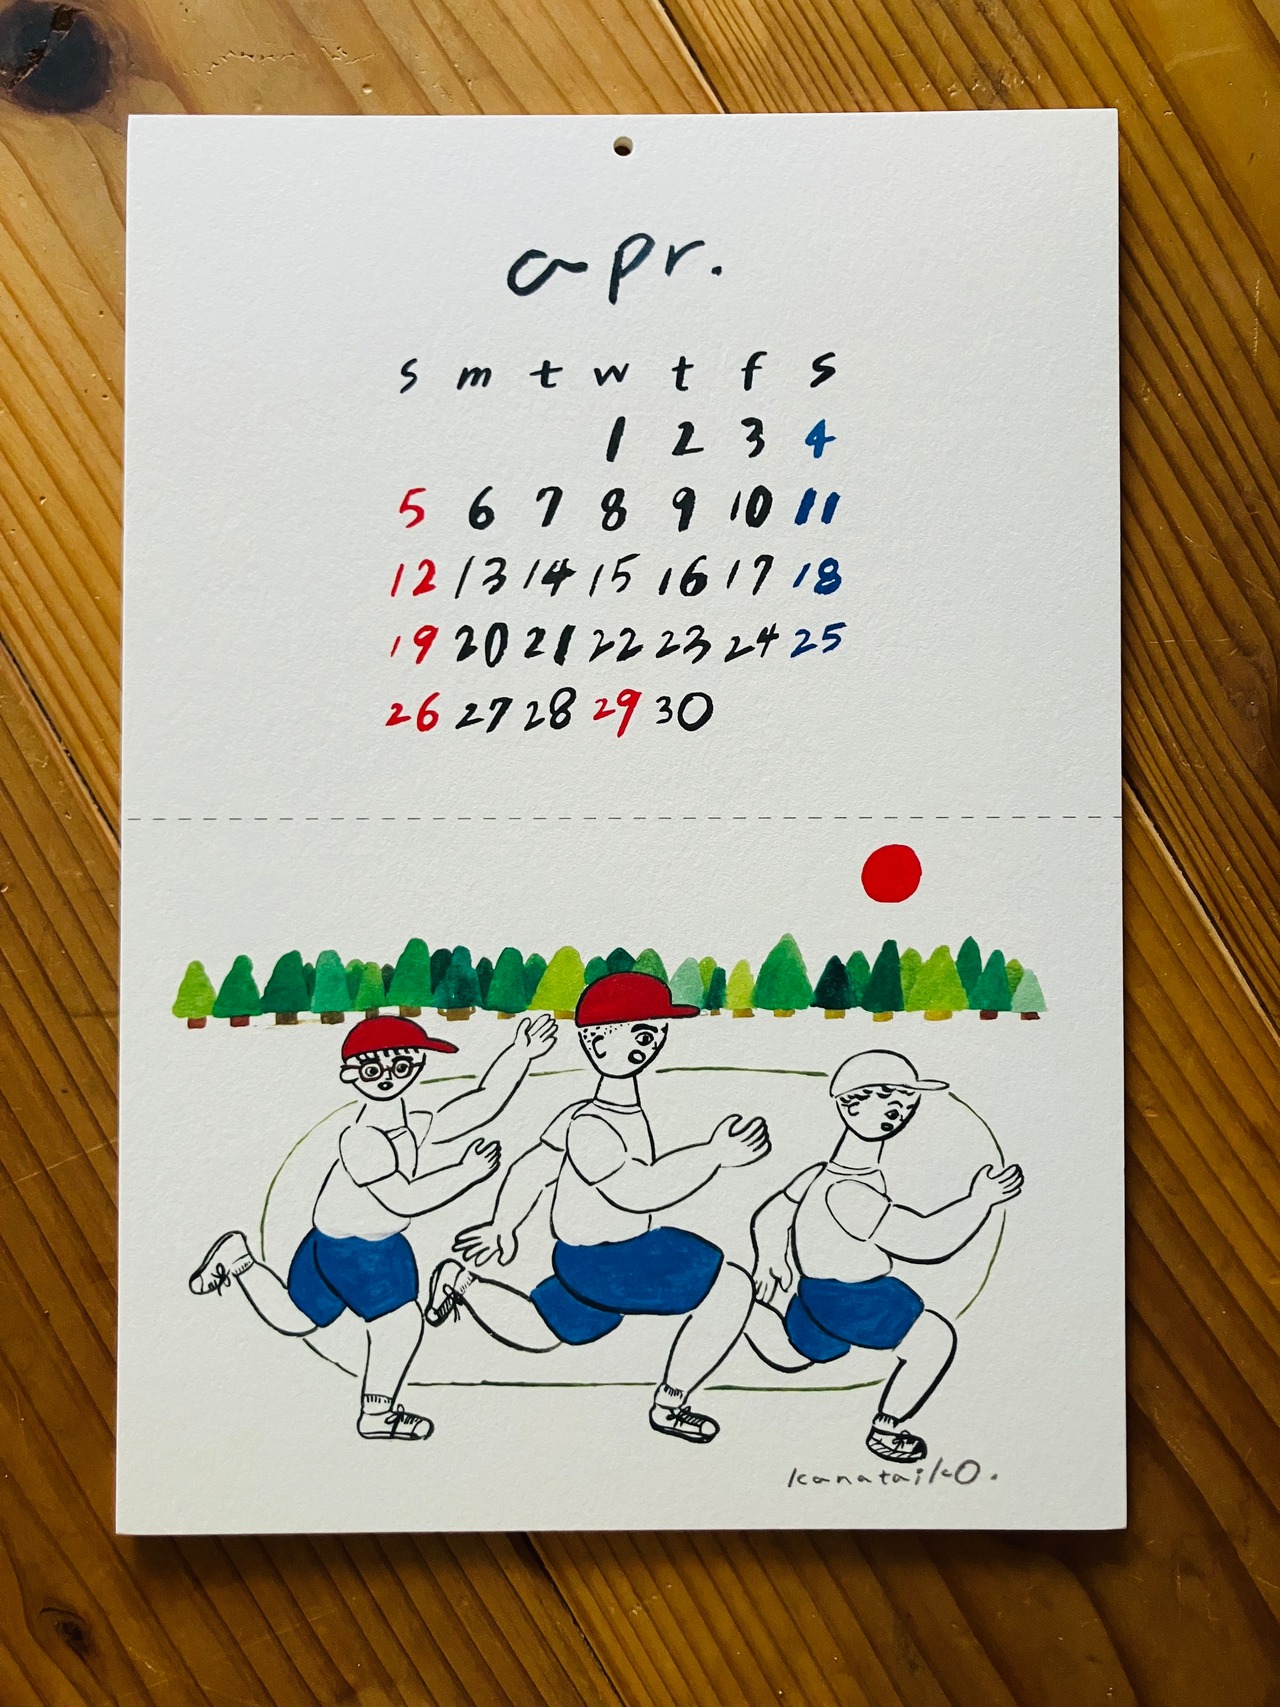 apr.
s m t w t f s
1 2 3 4
5 6 7 8 9 10 11
12 13 14 15 16 17 18
19 20 21 22 23 24 25
26 27 28 29 30
kanataiko.